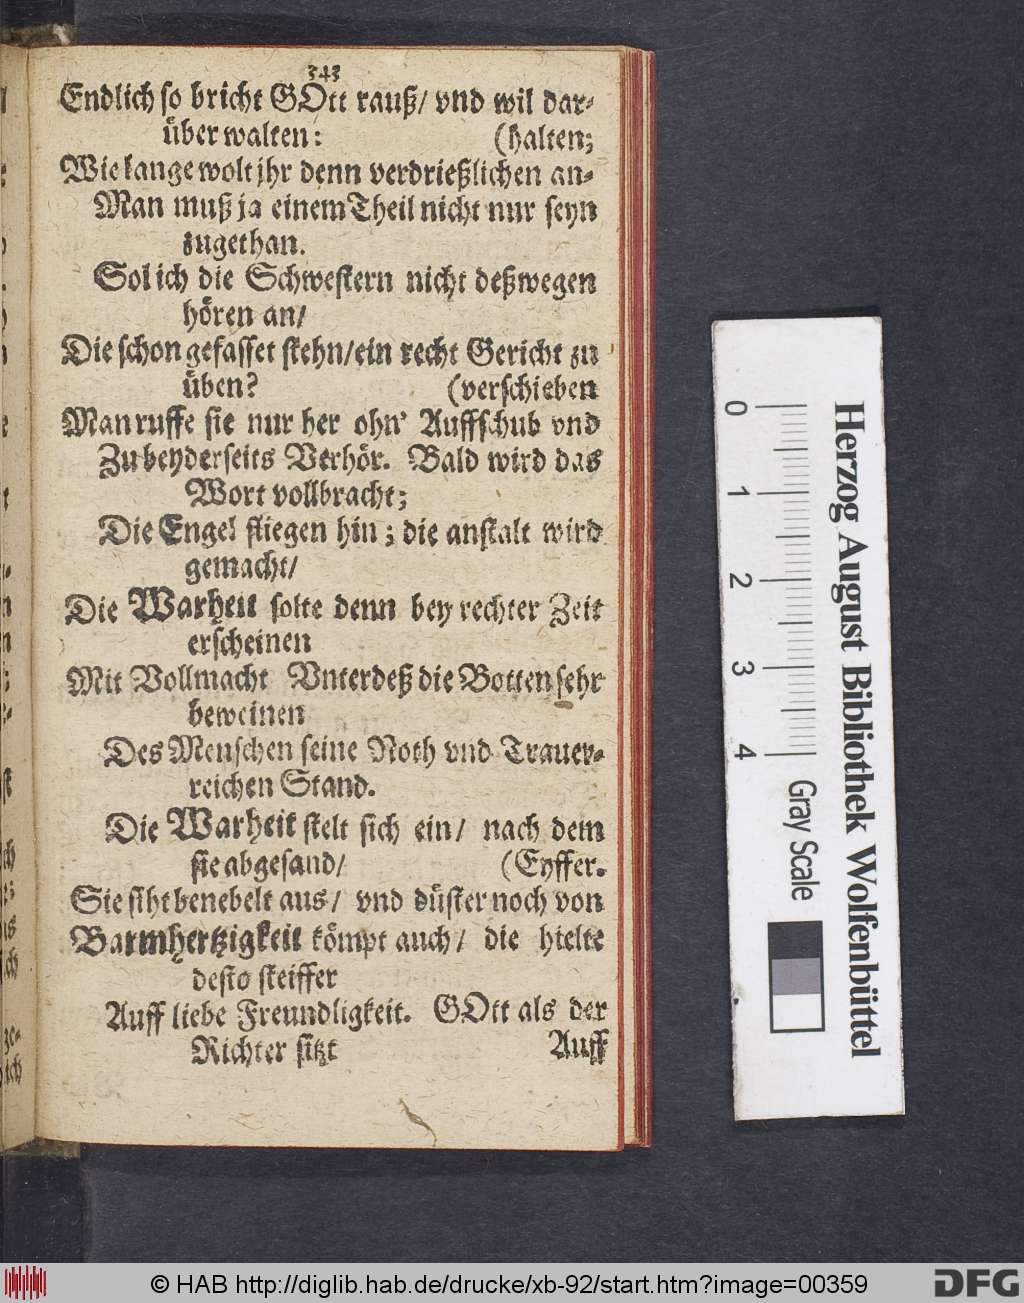 343
Endlich so bricht GOtt rauß/ vnd wil dar-
über walten: (halten;
Wie lange wolt jhr denn verdrießlichen an-
Man muß ja einem Theil nicht nur seyn
zugethan.
Sol ich die Schwestern nicht deßwegen
hören an/
Die schon gefasset stehn/ein recht Gericht zu
üben? (verschieben
Man ruffe sie nur her ohn' Auffschub vnd
Zu beyderseits Verhör. Bald wird das
Wort vollbracht;
Die Engel fliegen hin; die anstalt wird
gemacht/
Die Warheit solte denn bey rechter Zeit
erscheinen
Mit Vollmacht Vnterdeß die Botten sehr
beweinen
Des Menschen seine Noth vnd Trauer-
reichen Stand.
Die Warheit stelt sich ein/ nach dem
sie abgesand/ (Eyffer.
Sie siht benebelt aus/ vnd düster noch von
Barmhertzigkeit kömpt auch/ die hielte
desto steiffer
Auff liebe Freundligkeit. GOtt als der
Richter sitzt Auff
0 1 2 3 4
Gray Scale
Herzog August Bibliothek Wolfenbüttel
© HAB http://diglib.hab.de/drucke/xb-92/start.htm?image=00359
DFG